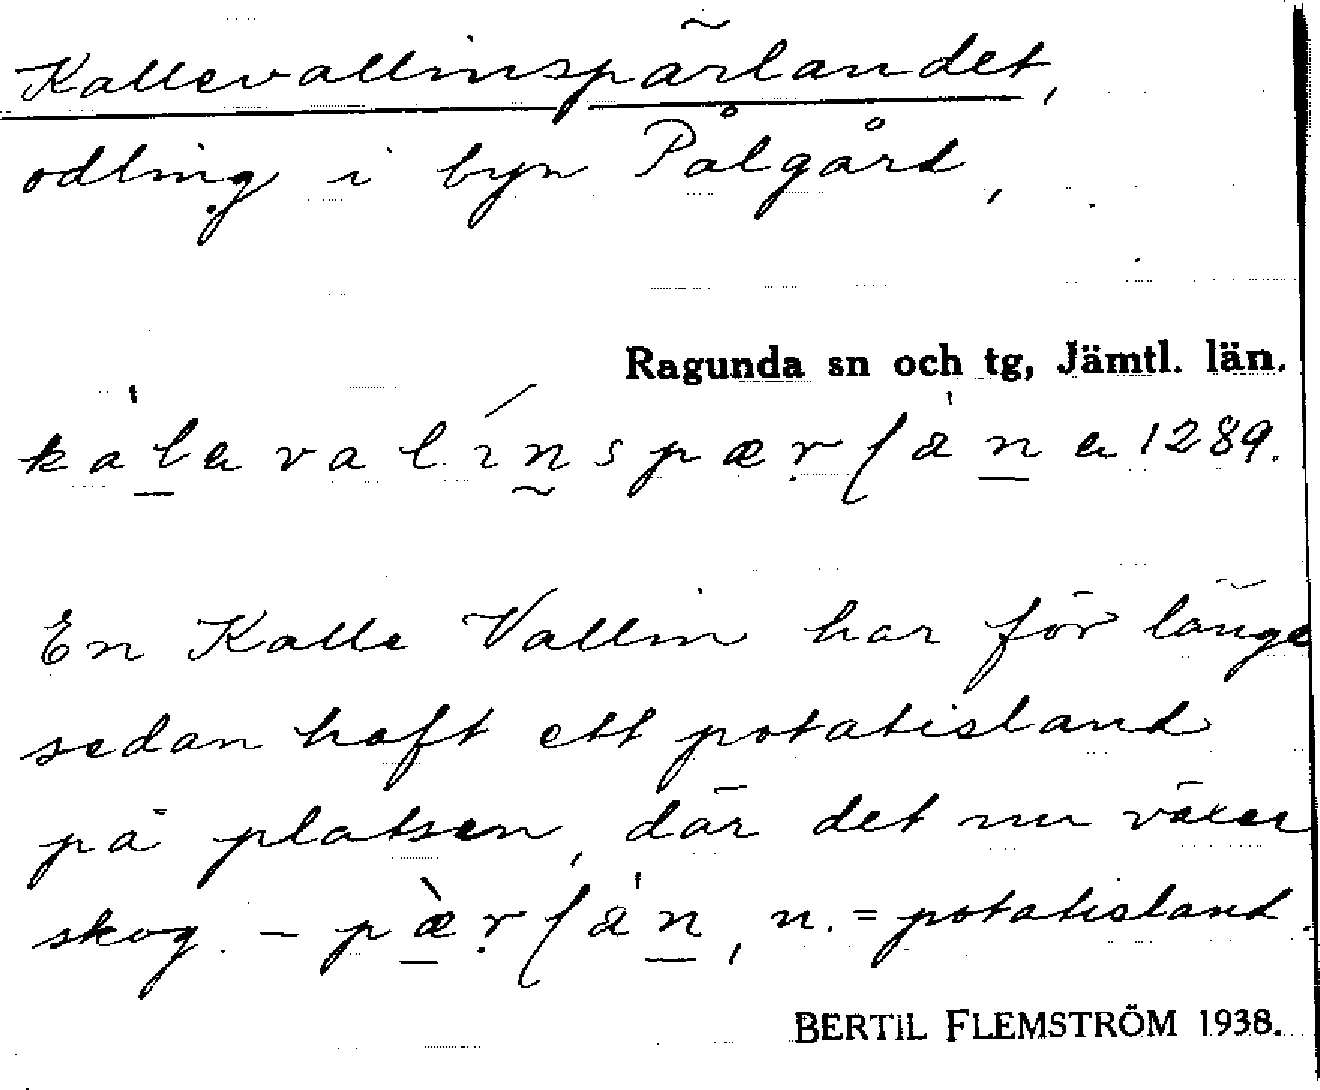 Kallevallinspärlandet,
odling i byn Pålgård,
Ragunda sn och tg, Jämtl. län.
kalevalinspærlanɐ 1289.
En Kalle Vallin har för länge
sedan haft ett potatisland
på platsen, där det nu växer
skog. – pæ̀rlan, n. = potatisland.
BERTIL FLEMSTRÖM 1938.